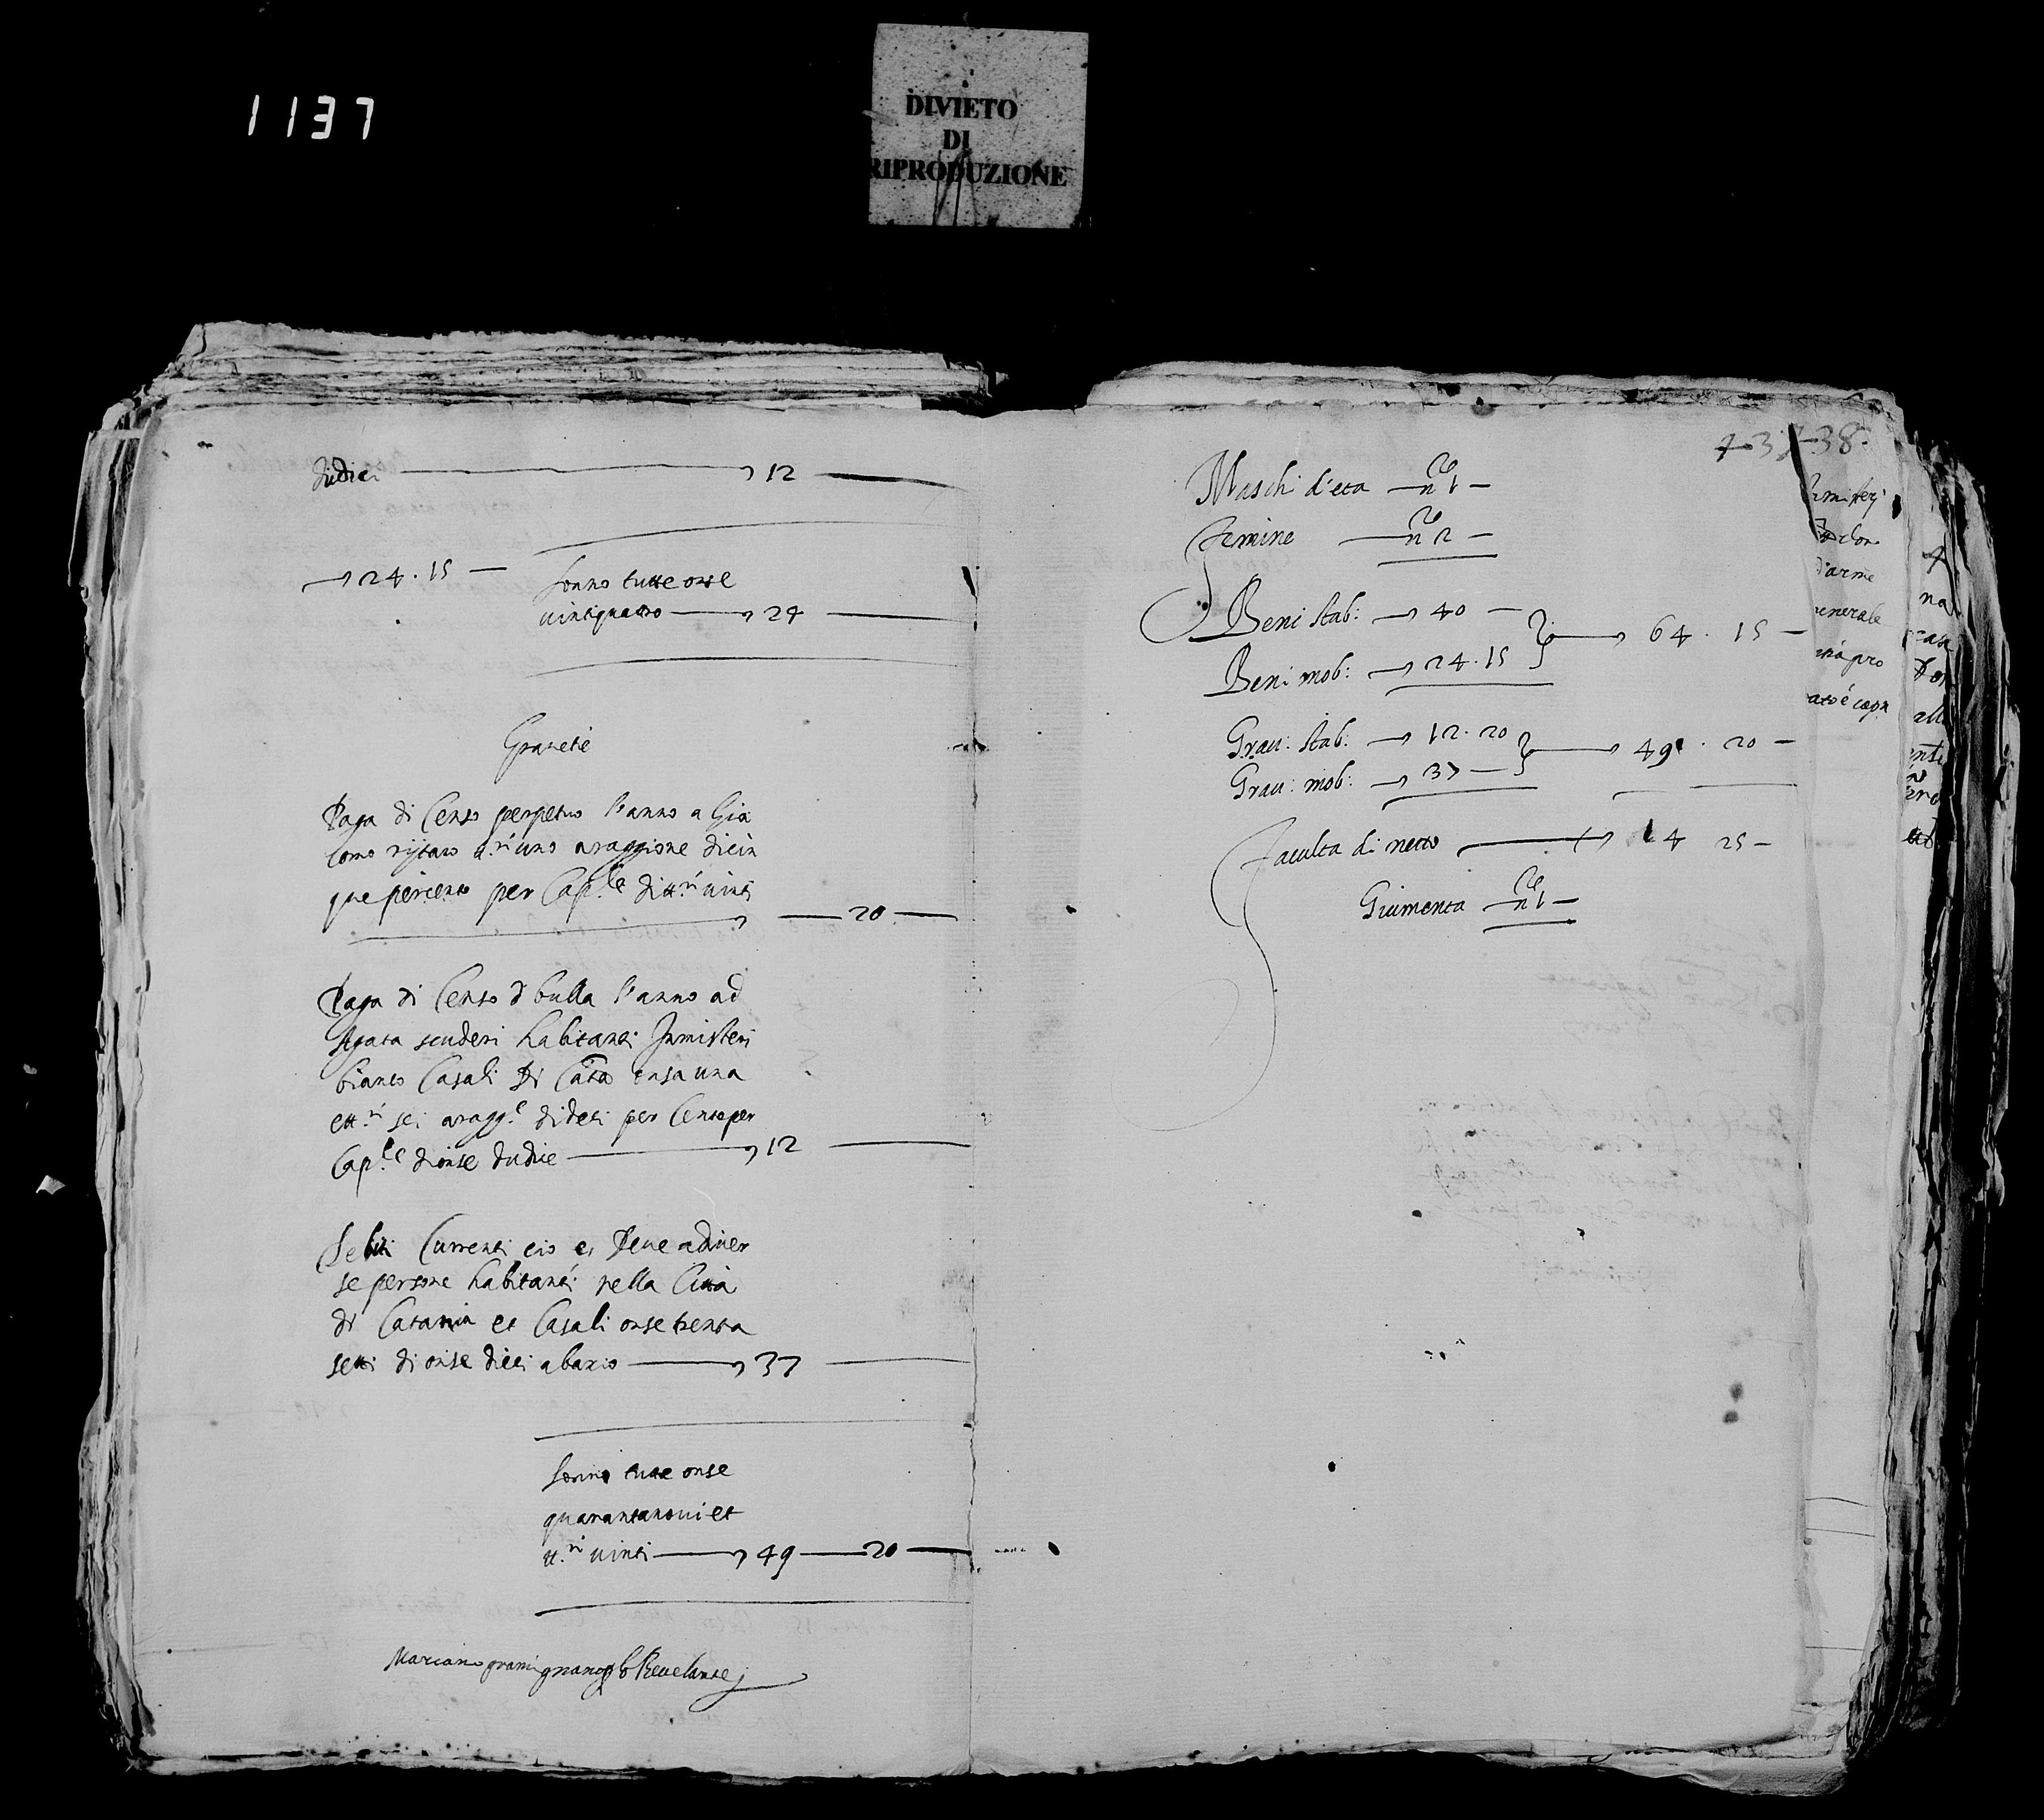 1137
DIVIETO
DI
RIPRODUZIONE
dudici 12
24.15 sonno tutte onse
vintiquattro 24
Gravetie
Paga di Censo perpetuo l'anno a Gia
como a tt.ri uno araggione dicin
que percento per Cap.le di tt.ri vinti
20
Paga di Censo d bulla l'anno ad
Agata scuderi habitanti Inmisteri
bianco Casali di Cata onsa una
et tt.ri sei aragg.e dideci per Centoper
Cap.le d'onse dudice 12
Debiti Currenti cio e Deve adiver
se persone habitanti nella Città
di Catania et Casali onse trenta
setti di onse dieci abaxio 37
sonno tutte onse
quarantanovi et
tt.ri vinti 49 20
Mariano gramignano Revelante
38.
Maschi d'eta n.o 1
Femine n.o 2
Beni stab: 40
64 . 15
Beni mob: 24.15
Grav: stab: 12.20
49 . 20
Grav: mob: 37
Faculta di netto 14 25
Giumenta n.o 1
d'arme
enerale